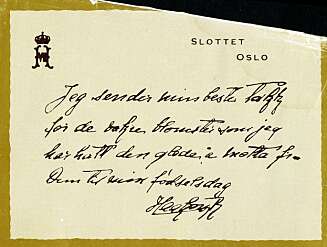 SLOTTET
OSLO
Jeg sender min beste takk
for de vakre blomster som jeg
har hatt den glede å motta fra
Dem til min fødselsdag